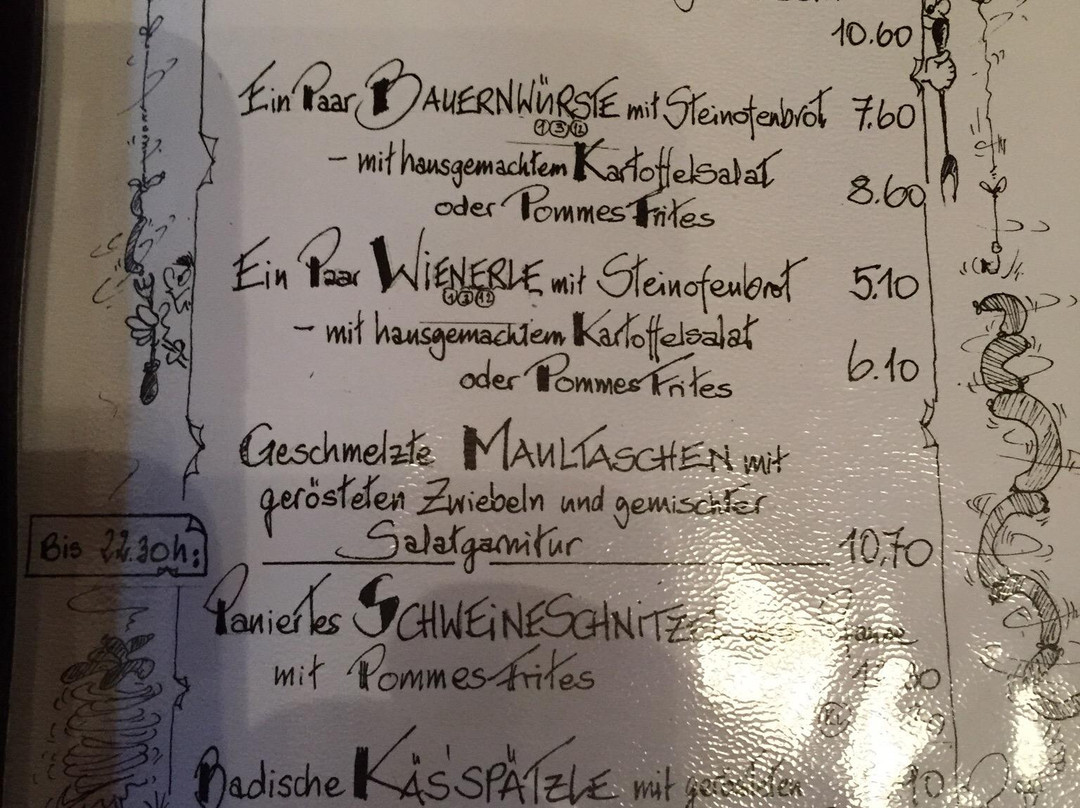 10.60
Ein Paar BAUERNWÜRSTE mit Steinofenbrot 7.60
1 3 12
- mit hausgemachtem Kartoffelsalat
oder Pommes Frites 8.60
Ein Paar WIENERLE mit Steinofenbrot 5.10
- mit hausgemachtem Kartoffelsalat
oder Pommes Frites 6.10
Geschmelzte MAULTASCHEN mit
gerösteten Zwiebeln und gemischter
Salatgarnitur 10,70
Bis 22.30h:
Paniertes SCHWEINESCHNITZEL
mit Pommes Frites
Badische KÄS'SPÄTZLE mit gerösteten